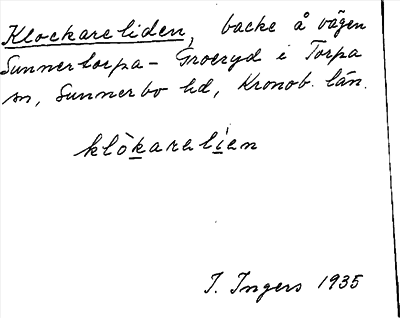 Klockareliden, backe å vägen
Sunnertorpa - Groeryd i Torpa
sn, Sunnerbo hd, Kronob. län.
klòkarelien
I. Ingers 1935